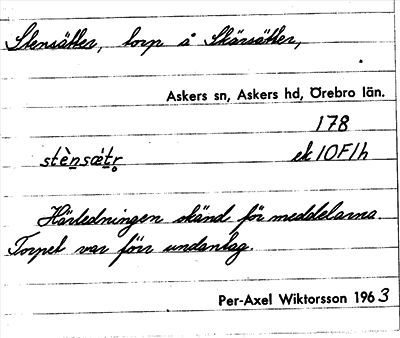 Stensätter, torp å Skärsätter,
Askers sn, Askers hd, Örebro län.
178
stè̱nsæ̱tr̥ ek 10F1h
Härledningen okänd för meddelarna.
Torpet var förr undantag.
Per-Axel Wiktorsson 1963